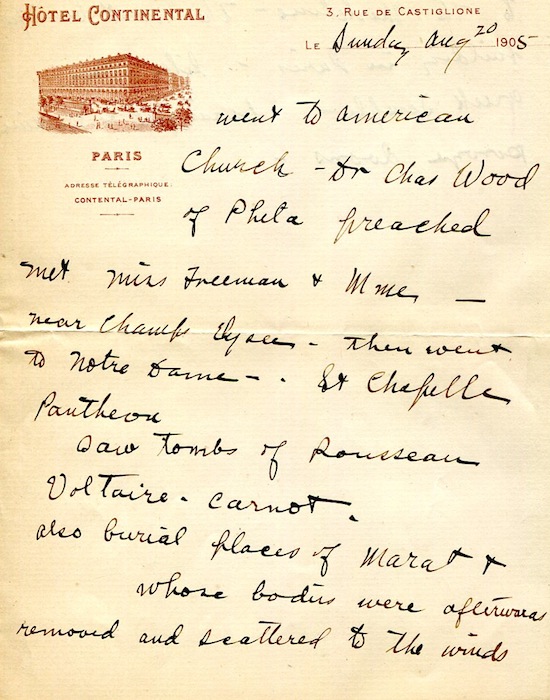 HÔTEL CONTINENTAL
3, RUE DE CASTIGLIONE
LE Sunday Aug 20 1905
PARIS
ADRESSE TÉLÉGRAPHIQUE:
CONTENTAL-PARIS
went to American
Church - Dr Chas Wood
of Phila preached
met Miss Freeman & Mme —
near Champs Elysees - then went
to Notre Dame - . St Chapelle
Pantheon
Saw Tombs of Rousseau
Voltaire - Carnot.
also burial places of Marat &
whose bodies were afterwards
removed and scattered to the winds